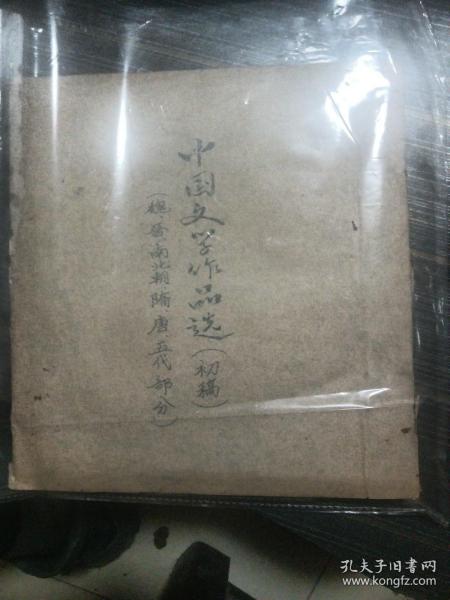 中国文学作品选(初稿)
(魏晋南北朝隋唐五代部分)
孔夫子旧书网
www.kongfz.com